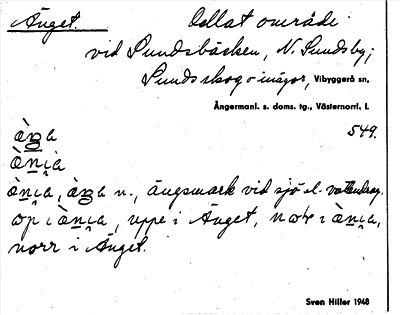 Änget. Odlat område
vid Sundsbäcken, N. Sundsby;
Sundsskog o inägor, Vibyggerå sn,
Ångermanl. s. doms. tg., Västernorrl. l.
549.
n., ängsmark vid sjö el. vattendrag.
uppe i Änget,
norr i Änget.
Sven Hiller 1948